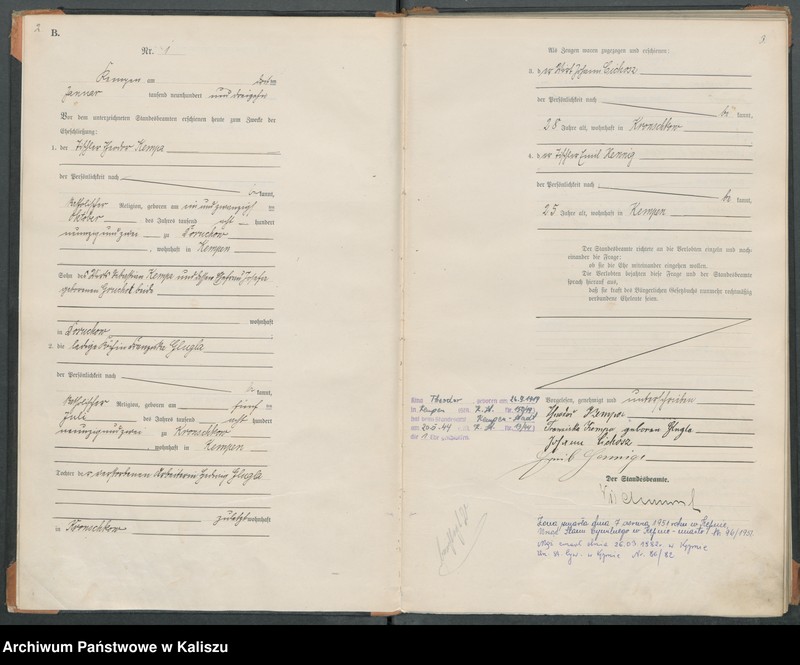 2
B.
Nr. 1
Kempen am
Januar tausend neunhundert und dreizehn
Vor dem unterzeichneten Standesbeamten erschienen heute zum Zwecke der
Eheschließung:
1. der Tischler Theodor Kempa
der Persönlichkeit nach
kannt,
katholischer Religion, geboren am ein und zwanzigsten
Oktober des Jahres tausend acht hundert
neunzig und zwei zu Doruchow
, wohnhaft in Kempen
Sohn des Wirts Sebastian Kempa und dessen Ehefrau Josefa
geborenen beide
wohnhaft
in Doruchow
2. die ledige Köchin Franziska Glugla
der Persönlichkeit nach
kannt,
katholischer Religion, geboren am
Juli des Jahres tausend acht hundert
neunzig und zwei zu Kronschkow
, wohnhaft in Kempen
Tochter der verstorbenen Arbeiterin Hedwig Glugla
zuletzt wohnhaft
in Kronschkow
3
Als Zeugen waren zugezogen und erschienen:
3. der Wirt Johann Cichosz
der Persönlichkeit nach
be kannt,
28 Jahre alt, wohnhaft in Kronschkow
4. der Tischler Emil Hennig
der Persönlichkeit nach
be kannt,
25 Jahre alt, wohnhaft in Kempen
Der Standesbeamte richtete an die Verlobten einzeln und nach-
einander die Frage:
ob sie die Ehe miteinander eingehen wollen.
Die Verlobten bejahten diese Frage und der Standesbeamte
sprach hierauf aus,
daß sie kraft des Bürgerlichen Gesetzbuchs nunmehr rechtmäßig
verbundene Eheleute seien.
Vorgelesen, genehmigt und unterschrieben
Theodor Kempa
Franziska Kempa geborene Glugla
Johann Cichosz
Emil Hennig
Der Standesbeamte.
Theodor geboren am 26.9.1919
in Kempen
am 20.5.44
Żona zmarła dnia 7 1951 roku w Kępnie
Urząd Stanu Cywilnego w Kępnie - miasto Nr. 46/1951.
Mąż zmarł dnia 26.03.1982r. w Kępnie
Nr. 80/82
Archiwum Państwowe w Kaliszu